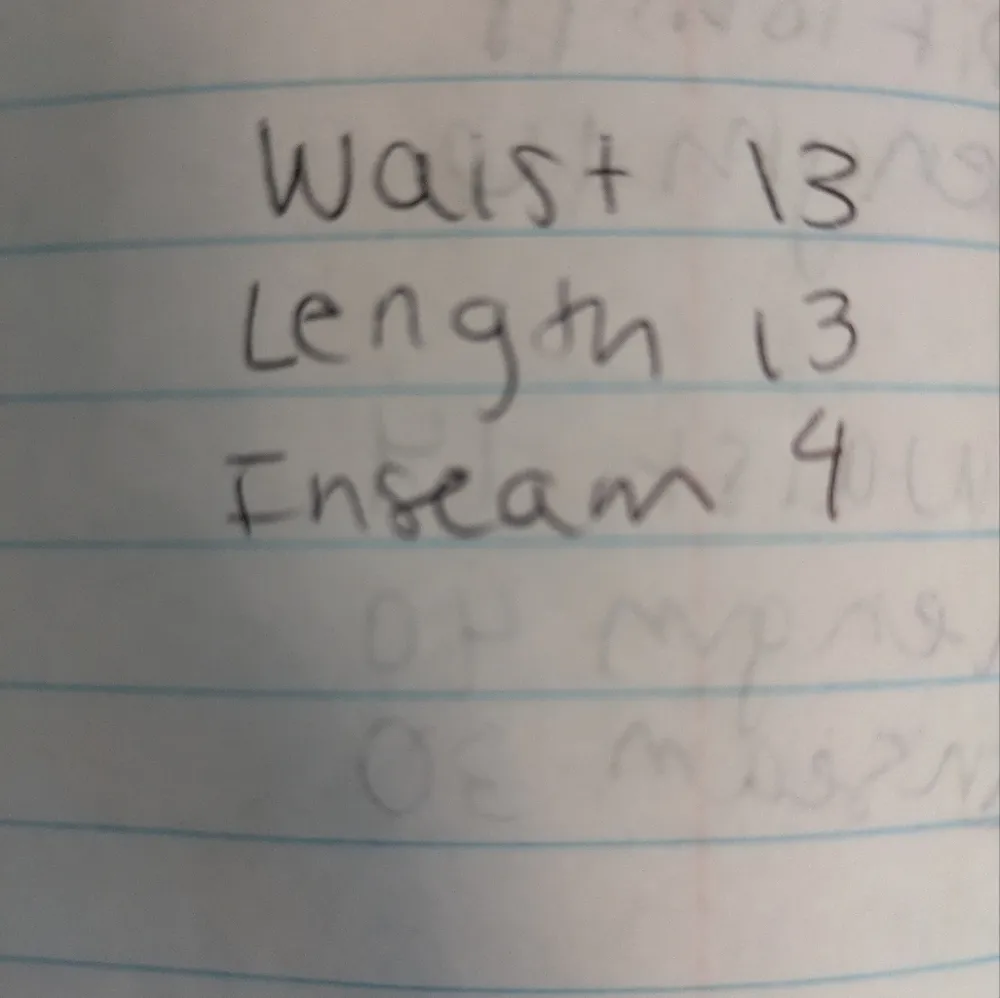 Waist 13
Length 13
Inseam 4